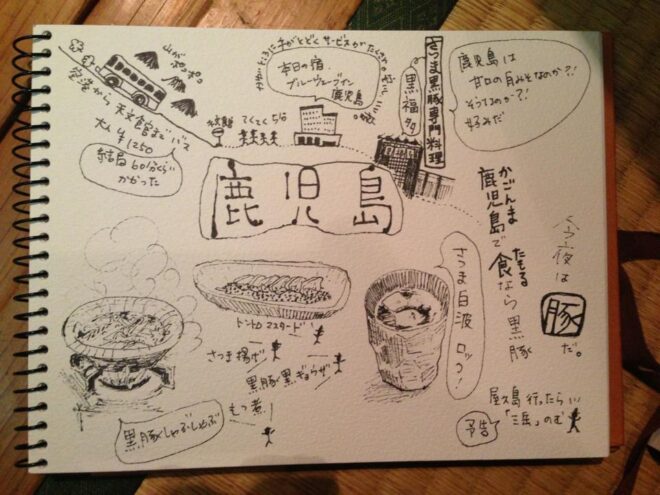 山がポコポコ
空港から天文館までバス
大人 ¥1250
結局60分くらい
かかった
てくてく5分
かゆいところに手がとどくサービスがたくさんのやど。
本日の宿
ブルーウェーブイン
鹿児島
さつま黒豚専門料理
黒福多
鹿児島は
甘口の
みそなのか?!
そうなのか?!
好みだ
鹿児島
かごんま
鹿児島で
たもる
食なら黒豚
今夜は
豚
だ。
さつま白波 ロック!
トントロマスタード
さつま揚げ
黒豚黒ぎょうザ
もつ煮!
黒豚しゃぶしゃぶ
屋久島行ったら
「三岳」のむ
予告